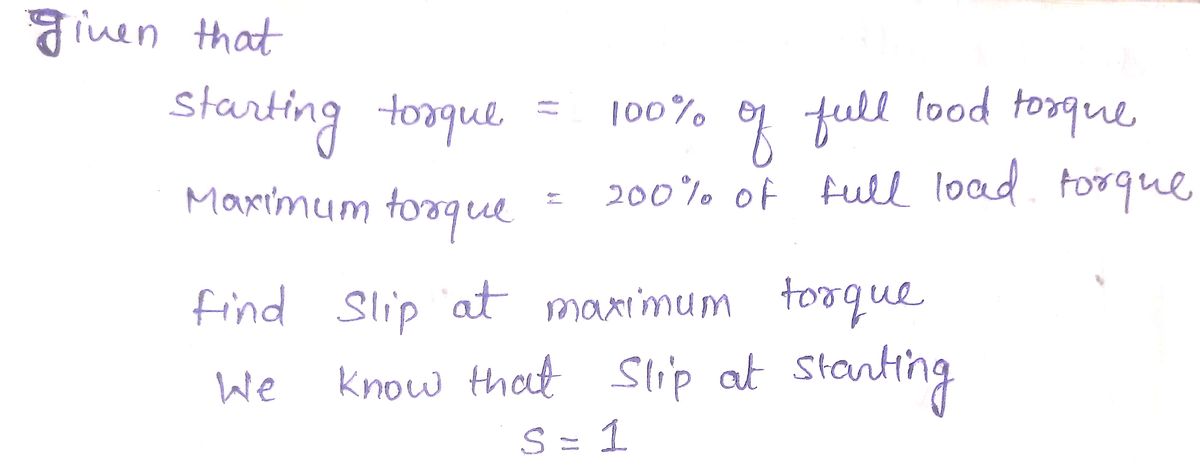 given that
starting torque = 100% of full lood torque
Maximum torque = 200% of full load torque
find Slip at maximum torque
We know that Slip at starting
S = 1